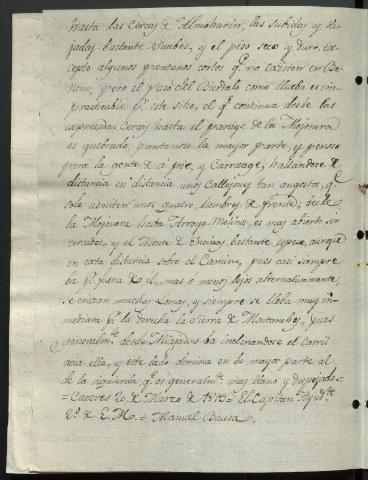 hasta las Cercas de Almoharin, las subidas y ba-
jadas bastante suabes, y el piso seco y duro, ex-
cepto algunos pantanos cortos q.e no existen en Be-
rano, pero el paso del Burdalo como llueba es im-
practicable p.r este sitio, el q.e continua desde las
expresadas Cercas hasta el parage de la Mojonera
es quebrado, pantanoso la mayor parte, y penoso
para la gente de a pie, y Carruage, hallandose de
distancia en distancia unos Callejones tan angostos, q.e
solo admiten unos quatro hombres de frente; desde
la Mojonera hasta Arroyo-Molinos, es mas abierto sin
cercados, y el Monte de Encina, bastante espeso, aunque
en corta distancia sobre el Camino, pues casi siempre
ba p.r fuera de el, mas o menos lejos alternativamente,
se cruzan muchas Lomas, y siempre se lleba muy in-
mediata p.r la derecha la Sierra de Montanchez, pues
generalm.te desde Miajadas ba inclinandose el Carril
acia ella, y este lado domina en la mayor parte al
de la izquierda q.e es generalm.te mas llano y despejado.=
= Caceres 20 de Marzo de 1813 = El Capitan Ayud.te
2.o de E. M. = Manuel Bausa.